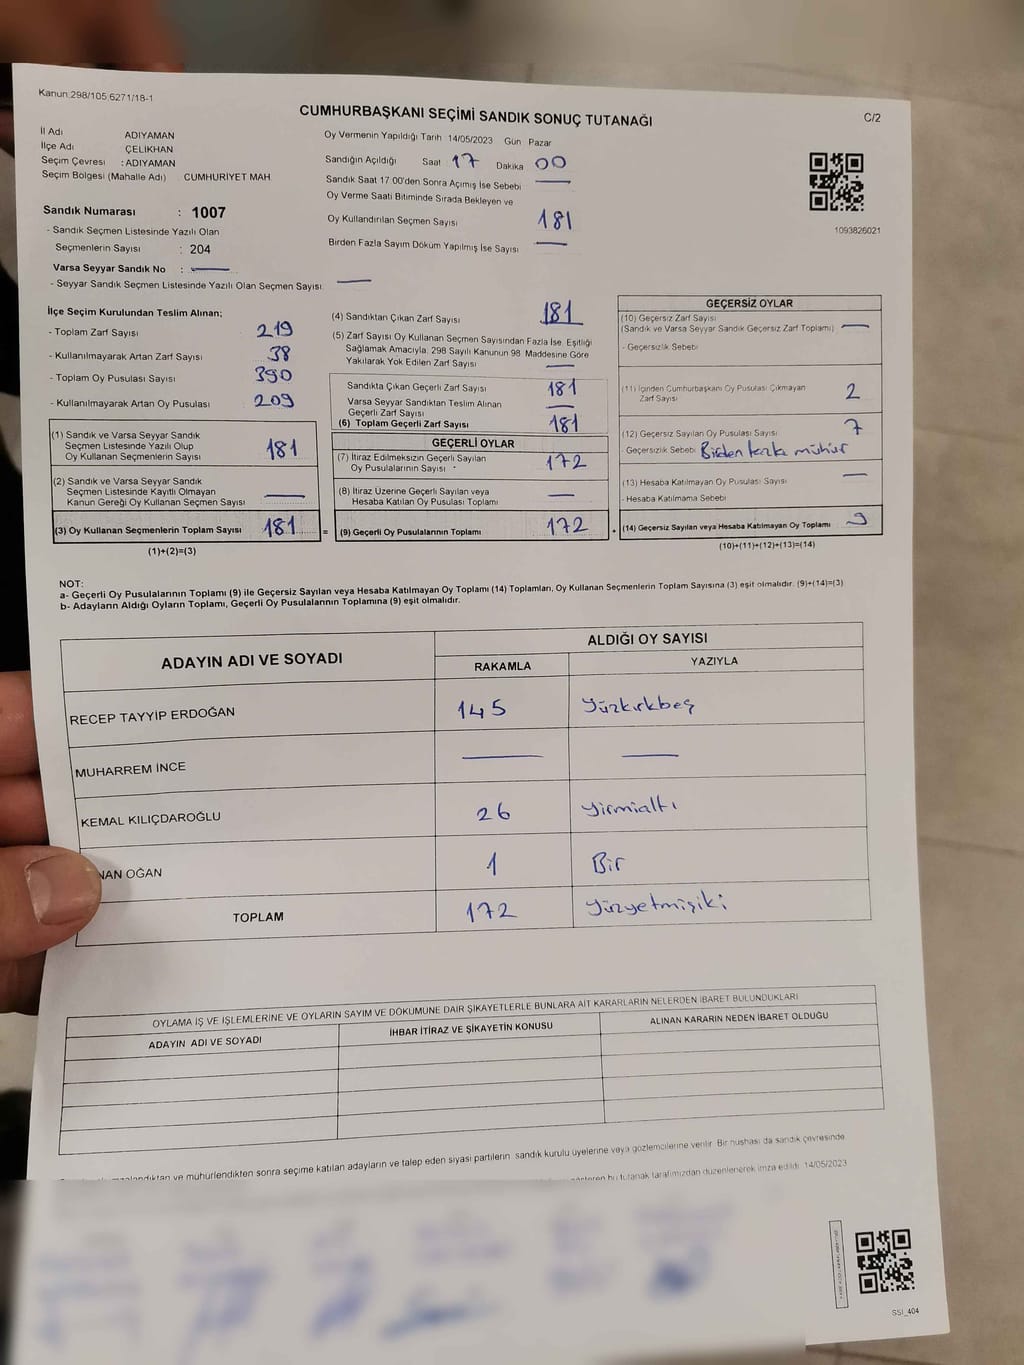 Kanun:298/105,6271/18-1
CUMHURBAŞKANI SEÇİMİ SANDIK SONUÇ TUTANAĞI
C/2
İl Adı ADIYAMAN
İlçe Adı ÇELİKHAN
Seçim Çevresi : ADIYAMAN
Seçim Bölgesi (Mahalle Adı) CUMHURİYET MAH.
Oy Vermenin Yapıldığı Tarih 14/05/2023 Gün Pazar
Sandığın Açıldığı Saat 17 Dakika 00
Sandık Saat 17:00'den Sonra Açımış İse Sebebi —
Oy Verme Saati Bitiminde Sırada Bekleyen ve
Oy Kullandırılan Seçmen Sayısı 181
Birden Fazla Sayım Döküm Yapılmış İse Sayısı —
1093826021
Sandık Numarası : 1007
- Sandık Seçmen Listesinde Yazılı Olan
Seçmenlerin Sayısı : 204
Varsa Seyyar Sandık No : —
- Seyyar Sandık Seçmen Listesinde Yazılı Olan Seçmen Sayısı: —
İlçe Seçim Kurulundan Teslim Alınan;
- Toplam Zarf Sayısı 219
- Kullanılmayarak Artan Zarf Sayısı 38
- Toplam Oy Pusulası Sayısı 390
- Kullanılmayarak Artan Oy Pusulası 209
(1) Sandık ve Varsa Seyyar Sandık
Seçmen Listesinde Yazılı Olup
Oy Kullanan Seçmenlerin Sayısı 181
(2) Sandık ve Varsa Seyyar Sandık
Seçmen Listesinde Kayıtlı Olmayan
Kanun Gereği Oy Kullanan Seçmen Sayısı —
(3) Oy Kullanan Seçmenlerin Toplam Sayısı 181 =
(1)+(2)=(3)
(4) Sandıktan Çıkan Zarf Sayısı 181
(5) Zarf Sayısı Oy Kullanan Seçmen Sayısından Fazla İse, Eşitliği
Sağlamak Amacıyla, 298 Sayılı Kanunun 98. Maddesine Göre
Yakılarak Yok Edilen Zarf Sayısı —
Sandıkta Çıkan Geçerli Zarf Sayısı 181
Varsa Seyyar Sandıktan Teslim Alınan
Geçerli Zarf Sayısı —
(6) Toplam Geçerli Zarf Sayısı 181
GEÇERLİ OYLAR
(7) İtiraz Edilmeksizin Geçerli Sayılan
Oy Pusulalarının Sayısı 172
(8) İtiraz Üzerine Geçerli Sayılan veya
Hesaba Katılan Oy Pusulası Toplamı —
(9) Geçerli Oy Pusulalarının Toplamı 172 +
GEÇERSİZ OYLAR
(10) Geçersiz Zarf Sayısı
(Sandık ve Varsa Seyyar Sandık Geçersiz Zarf Toplamı) —
- Geçersizlik Sebebi
(11) İçinden Cumhurbaşkanı Oy Pusulası Çıkmayan
Zarf Sayısı 2
(12) Geçersiz Sayılan Oy Pusulası Sayısı 7
- Geçersizlik Sebebi Birden fazla mühür
(13) Hesaba Katılmayan Oy Pusulası Sayısı —
- Hesaba Katılmama Sebebi
(14) Geçersiz Sayılan veya Hesaba Katılmayan Oy Toplamı 9
(10)+(11)+(12)+(13)=(14)
NOT:
a- Geçerli Oy Pusulalarının Toplamı (9) ile Geçersiz Sayılan veya Hesaba Katılmayan Oy Toplamı (14) Toplamları, Oy Kullanan Seçmenlerin Toplam Sayısına (3) eşit olmalıdır. (9)+(14)=(3)
b- Adayların Aldığı Oyların Toplamı, Geçerli Oy Pusulalarının Toplamına (9) eşit olmalıdır.
ADAYIN ADI VE SOYADI
ALDIĞI OY SAYISI
RAKAMLA YAZIYLA
RECEP TAYYİP ERDOĞAN 145 Yüzkırkbeş
MUHARREM İNCE — —
KEMAL KILIÇDAROĞLU 26 Yirmialtı
NAN OĞAN 1 Bir
TOPLAM 172 Yüzyetmişiki
OYLAMA İŞ VE İŞLEMLERİNE VE OYLARIN SAYIM VE DÖKÜMÜNE DAİR ŞİKAYETLERLE BUNLARA AİT KARARLARIN NELERDEN İBARET BULUNDUKLARI
ADAYIN ADI VE SOYADI İHBAR İTİRAZ VE ŞİKAYETİN KONUSU ALINAN KARARIN NEDEN İBARET OLDUĞU
ve mühürlendikten sonra seçime katılan adayların ve talep eden siyasi partilerin sandık kurulu üyelerine veya gözlemcilerine verilir. Bir nüshası da sandık çevresinde
bu tutanak tarafımızdan düzenlenerek imza edildi. 14/05/2023
SSI_404